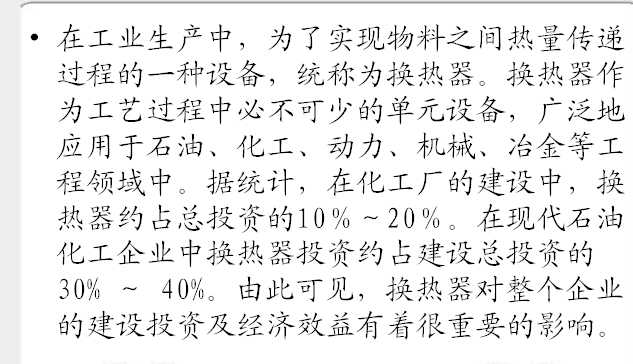 • 在工业生产中，为了实现物料之间热量传递
过程的一种设备，统称为换热器。换热器作
为工艺过程中必不可少的单元设备，广泛地
应用于石油、化工、动力、机械、冶金等工
程领域中。据统计，在化工厂的建设中，换
热器约占总投资的10％～20％。在现代石油
化工企业中换热器投资约占建设总投资的
30% ～ 40%。由此可见，换热器对整个企业
的建设投资及经济效益有着很重要的影响。